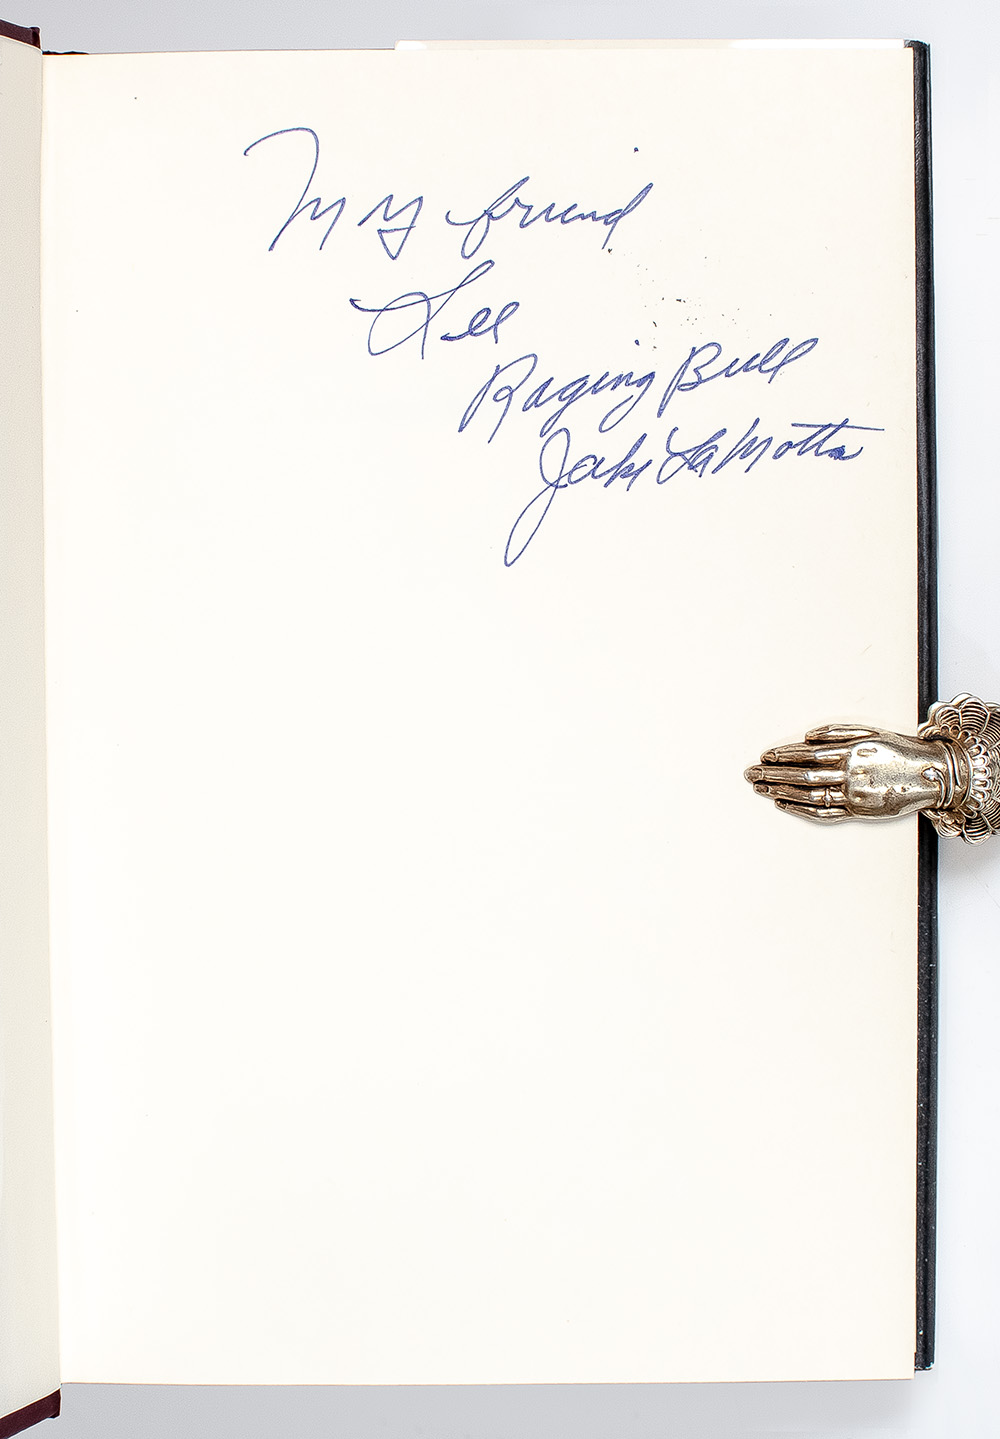 My friend
Lee
Raging Bull
Jake LaMotta